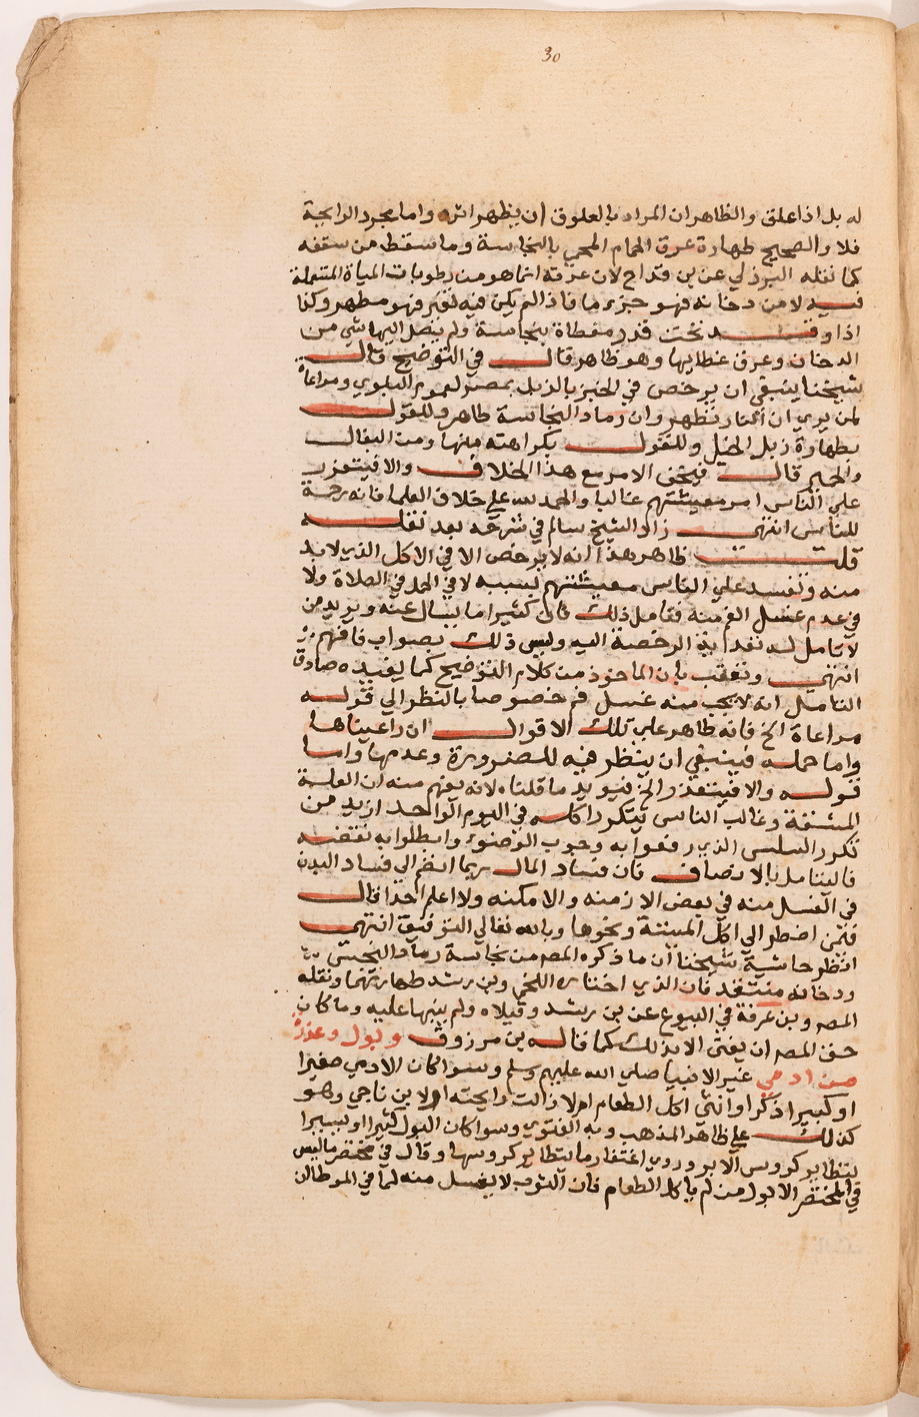 30
له بل اذا علق والظاهر ان المراد بالعلوق ان يظهر اثره واما مجرد الرايحة
فلا والصحيح طهارة عرق الحمام المحمي بالنجاسة وما سقط من سقفه
كما نقله البرزلي عن بن قداح لان عرقه انما هو من رطوبات المياة المتعملة
فيه لا من دخانه فهو جزء ما فاذا لم يكن فيه تغير فهو مطهر وكذا
اذا وقد تحت قدر مغطاة بنجاسة ولم يتصل اليها شي من
الدخان وعرق غطايها وهو ظاهر قال في التوضيح قال
شيخنا ينبغي ان يرخص في الخبز بالزبل بمصر لعموم البلوي ومراعاة
لمن يري ان النار تطهر وان رماد النجاسة طاهر وللقول
بطهارة زبل الخيل وللقول بكراهته منها ومن البغال
والحمير قال فيخف الامر مع هذا الخلاف والا فيتعذر
علي الناس امر معيشتهم غالبا والحمد لله علي خلاف العلما فانه رحمة
للناس انتهي زاد الشيخ سالم في شرحه بعد نقله
قلت ظاهر هذا انه لا يرخص الا في الاكل الذي لا بد
منه وتفسد علي الناس معيشتهم بسببه لا في الحمل في الصلاة ولا
في عدم غسل الفم منه فتامل ذلك فان كثيرا ما يسال عنه ويريد من
لا تامل له تعداية الرخصة اليه وليس ذلك بصواب فافهم
انتهي وتعقب بان الماخوذ من كلام التوضيح كما يفيده صادق
التامل انه لا يجب منه غسل فم خصوصا بالنظر الي قوله
مراعاة الخ فانه طاهر علي تلك الاقوال ان راعيناها
واما حمله فينبغي ان ينظر فيه للضرورة وعدمها واما
قوله والا فيتعذر الخ فيويد ما قلناه لانه يفهم منه ان العلة
المشقة وغالب الناس يتكرر اكله في اليوم الواحد ازيد من
تكرر السلس الذي رفعوا به وجوب الوضوء وابطلوا به نقضه
فاليتامل بالانصاف فان فساد المال ربما انضم الي فساد البدن
في الغسل منه في بعض الازمنه والامكنه ولا اعلم احدا قال
فيمن اضطر الي اكل الميتة ونحوها وبالله تعالي التوفيق انتهي
انظر حاشية شيخنا ان ما ذكره المصه من نجاسة رماد النجس
ودخانه منتقد فان الذي اختاره اللخمي وبن رشد طهارتهما ونقله
المصه وبن عرفة في البيوع عن بن رشد وقبلاه ولم ينبها عليه وما كان
حق المصه ان يفتي الا بذلك كما قال بن مرزوق وبول وعذرة
من ادمي غير الانبيا صلي الله عليهم وسلم وسوا كان الادمي صغيرا
او كبيرا ذكرا او انثي اكل الطعام ام لا زالت رايحته ام لا بن ناجي وهو
كذلك علي ظاهر المذهب وبه الفتوي وسوا كان البول كثيرا او يسيرا
يتطاير كروس الابر وروي اغتفار ما يتطاير كروسها وقال في مختصر ما ليس
في المختصر الا بول من لم ياكل الطعام فان الثوب لا يغسل منه لما في الموطا ان